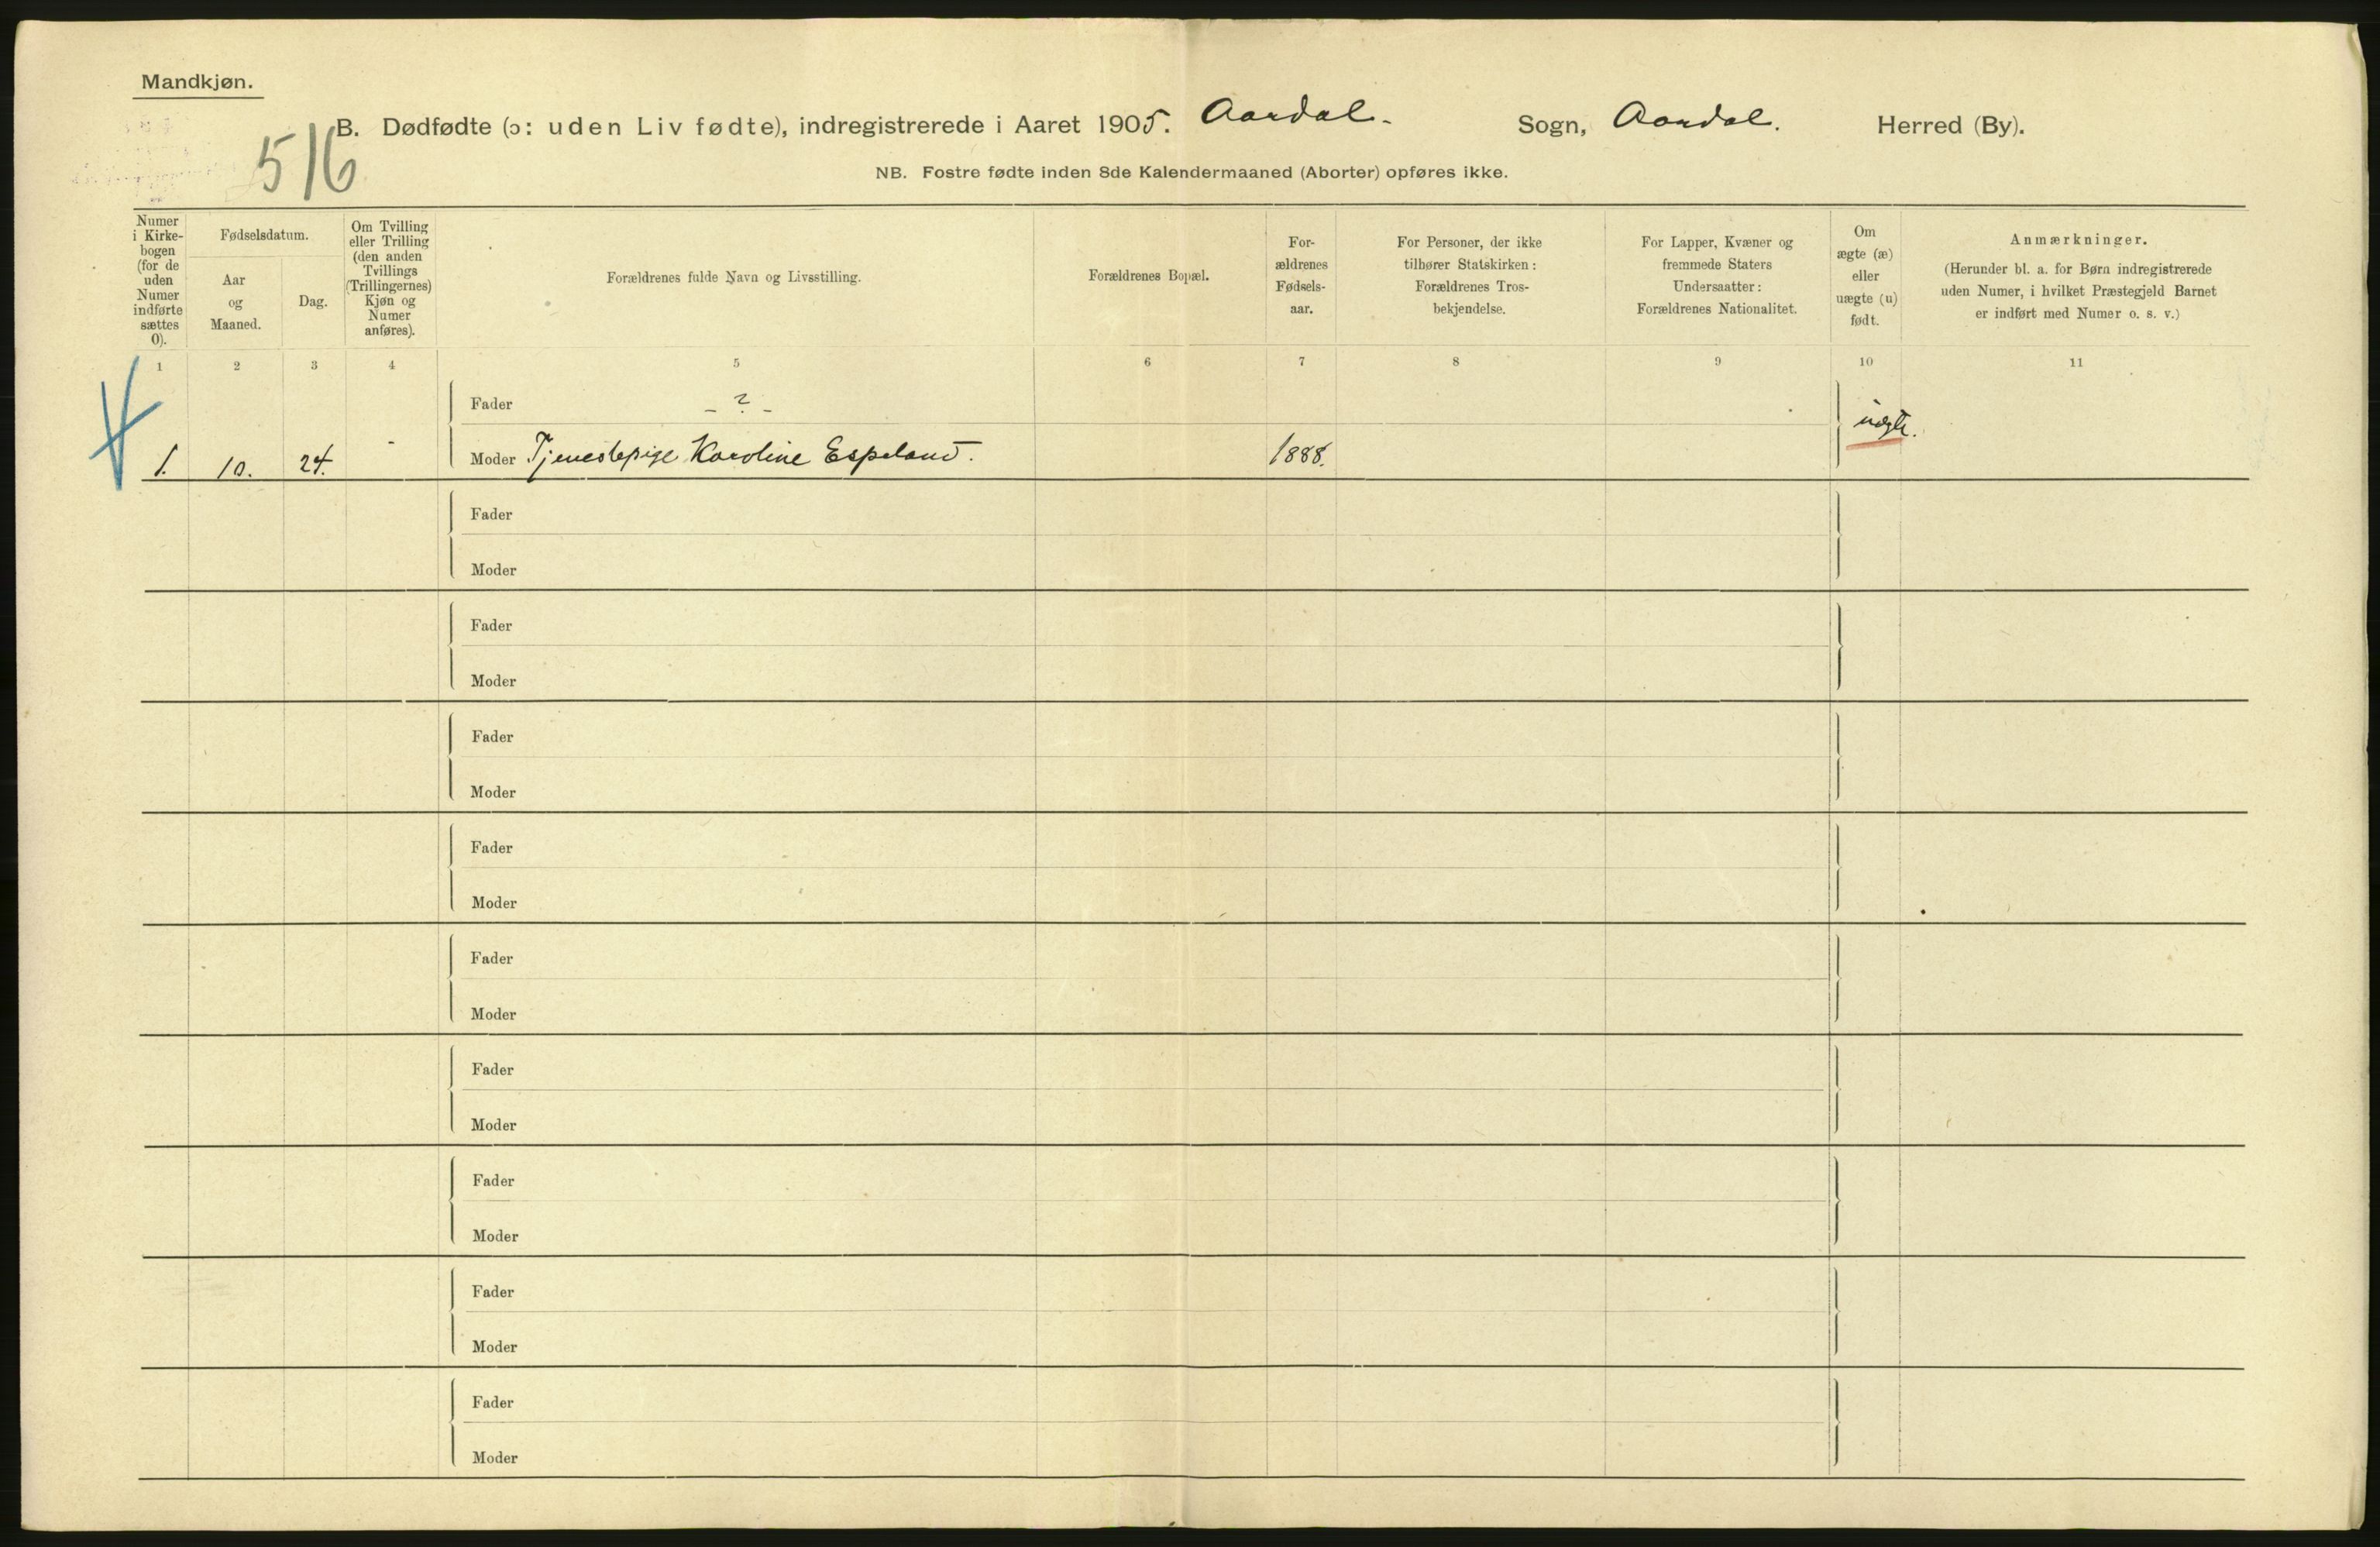 Mandkjøn.
B. Dødfødte (ɔ: uden Liv fødte), indregistrerede i Aaret 1905. Aardal. Sogn, Aardal. Herred (By).
516
NB. Fostre fødte inden 8de Kalendermaaned (Aborter) opføres ikke.
Numer
i Kirke-
bogen
(for de
uden
Numer
indførte
sættes
0).
Fødselsdatum.
Aar
og
Maaned.
Dag.
Om Tvilling
eller Trilling
(den anden
Tvillings
(Trillingernes)
Kjøn og
Numer
anføres).
Forældrenes fulde Navn og Livsstilling.
Forældrenes Bopæl.
For-
ældrenes
Fødsels-
aar.
For Personer, der ikke
tilhører Statskirken:
Forældrenes Tros-
bekjendelse.
For Lapper, Kvæner og
fremmede Staters
Undersaatter:
Forældrenes Nationalitet.
Om
ægte (æ)
eller
uægte (u)
født.
Anmærkninger.
(Herunder bl. a. for Børn indregistrerede
uden Numer, i hvilket Præstegjeld Barnet
er indført med Numer o. s. v.)
1 2 3 4 5 6 7 8 9 10 11
Fader - ? -
uægte.
1. 10. 24. - Moder Tjenestepige Karoline Espeland. 1888.
Fader
Moder
Fader
Moder
Fader
Moder
Fader
Moder
Fader
Moder
Fader
Moder
Fader
Moder
Fader
Moder
Fader
Moder